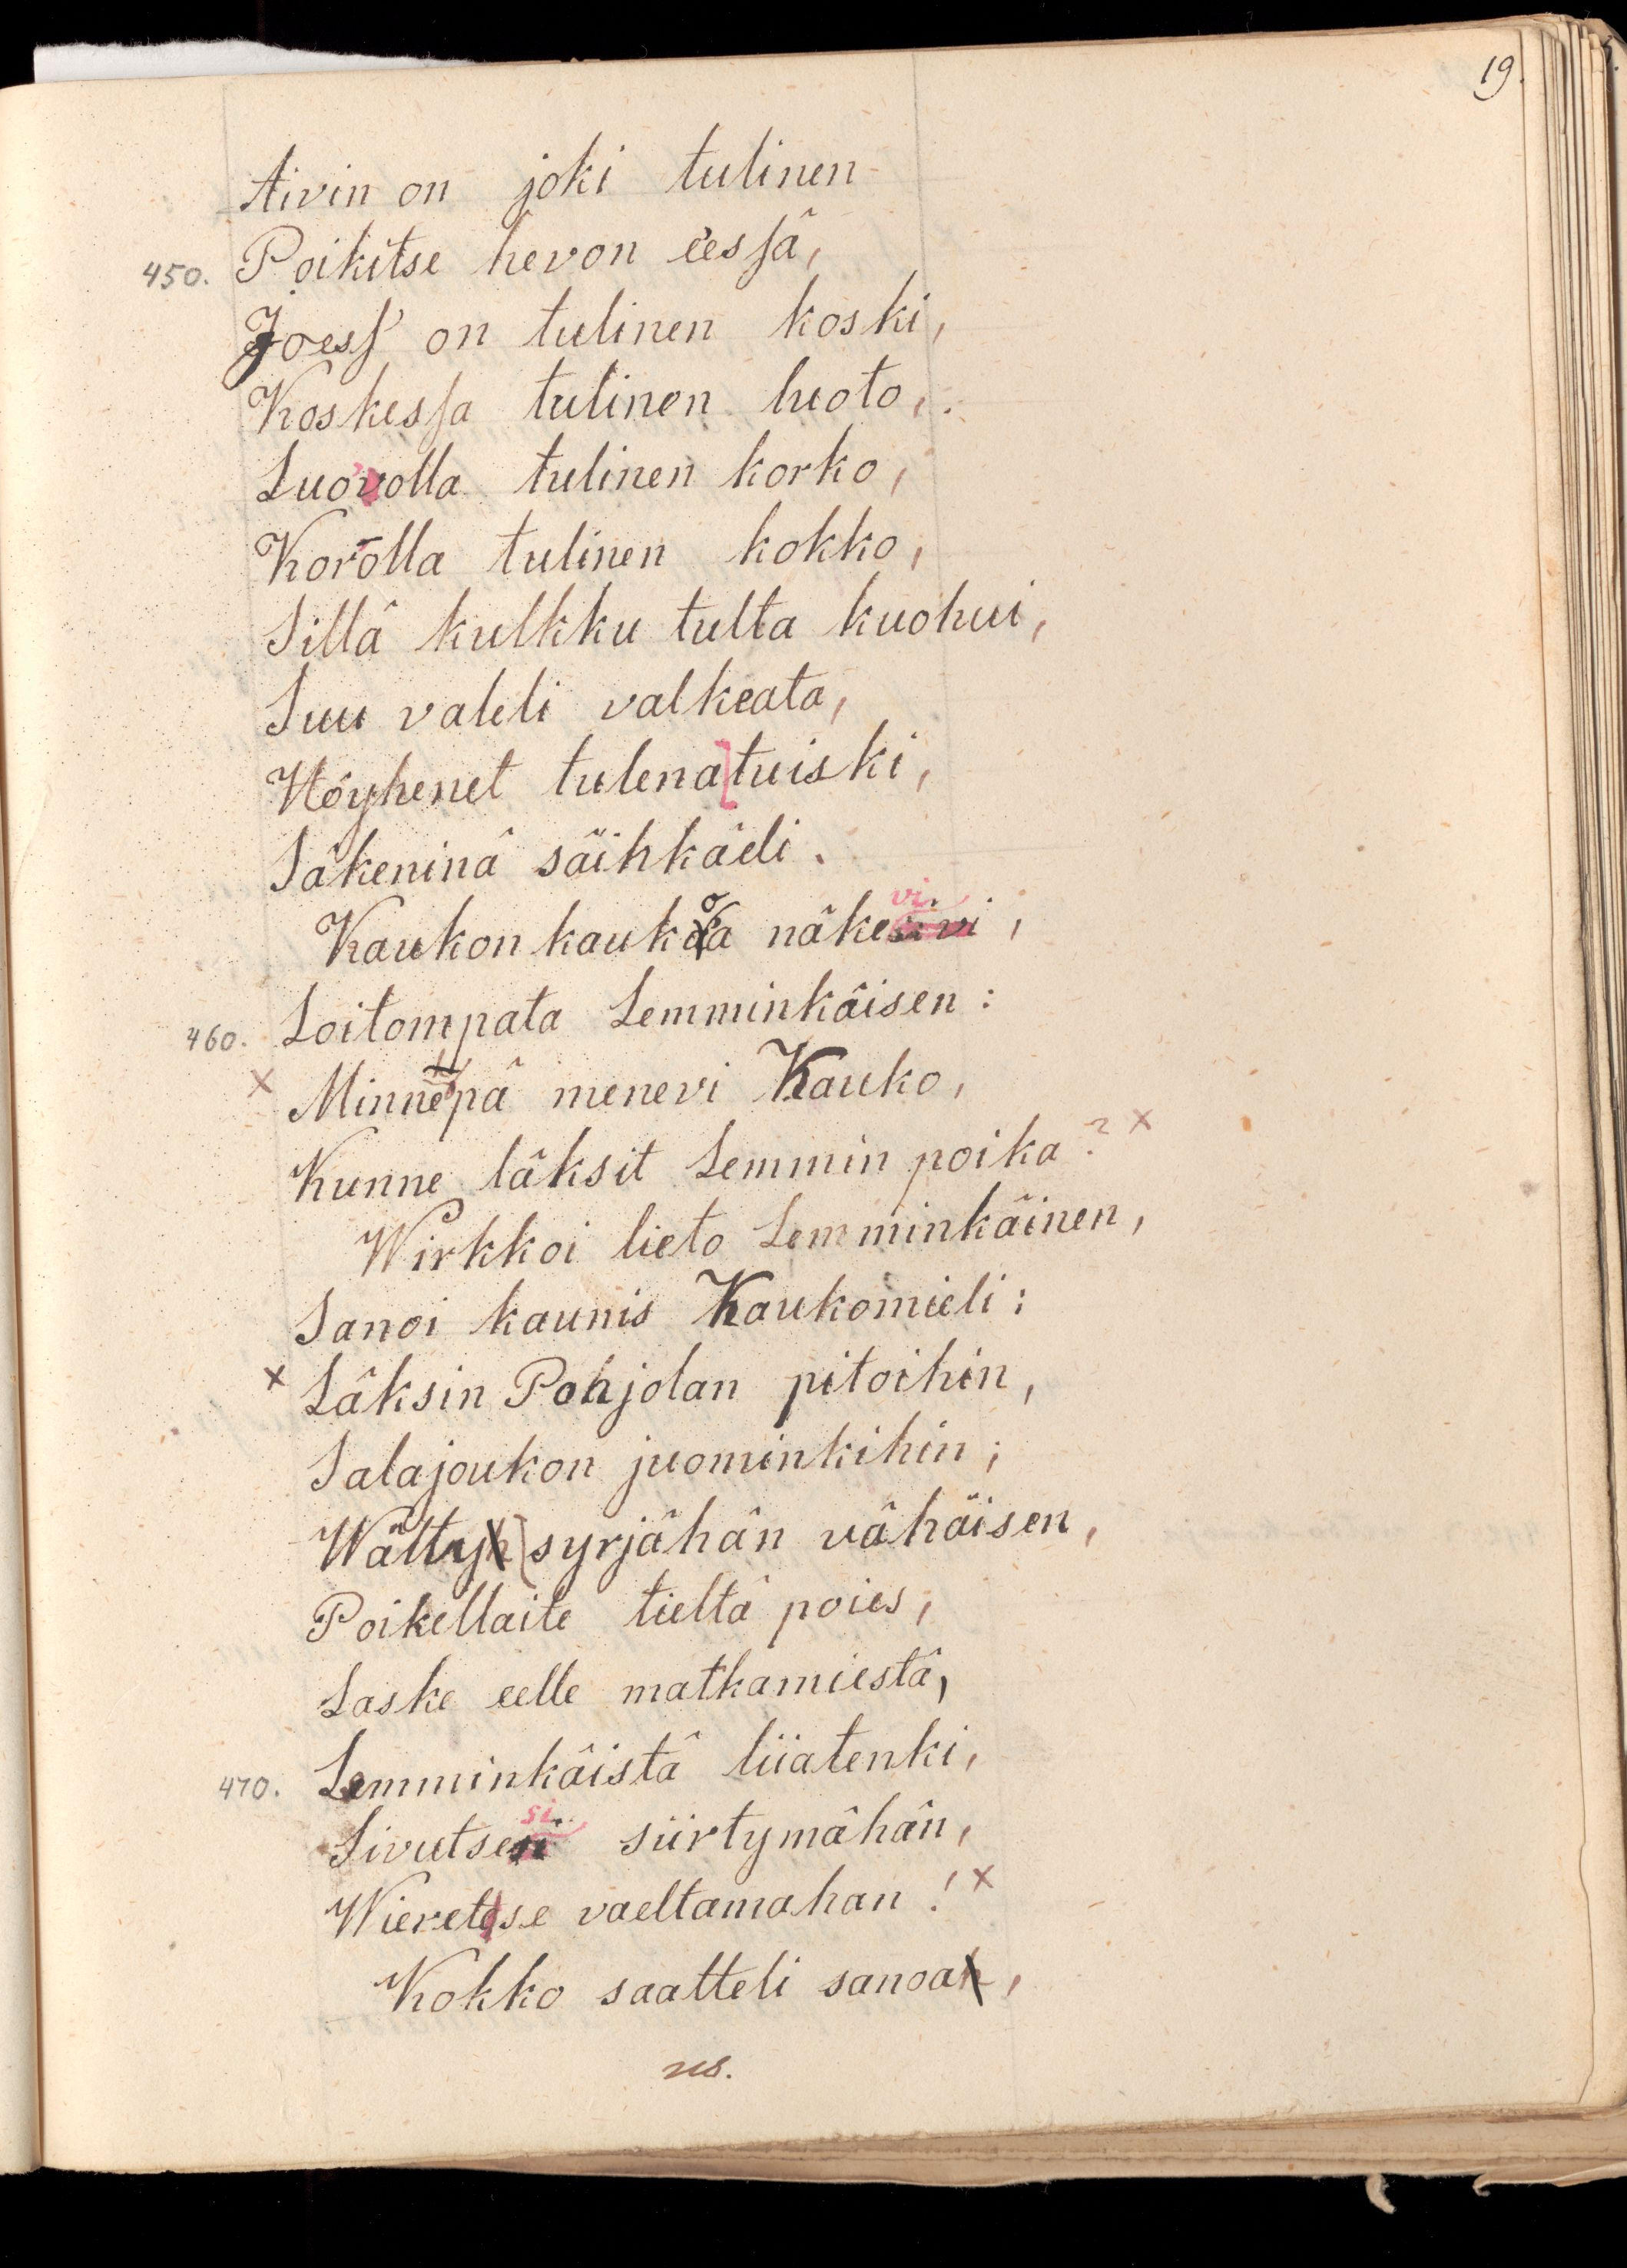 19.
Aivin on joki tulinen
450. Poikitse hevon eessä,
Joess' on tulinen koski,
Koskessa tulinen luoto,
Luovolla tulinen korko,
Korolla tulinen kokko,
Sillä kulkku tulta kuohui,
Suu valeli valkeata,
Höyhenet tulena tuiski,
Säkeninä säihkäeli.
Kaukon kaukoa näkevi,
460. Loitompata Lemminkäisen:
× Minnepä menevi Kauko,
Kunne läksit Lemmin poika? ×
Wirkkoi lieto Lemminkäinen,
Sanoi kaunis Kaukomieli:
× Läksin Pohjolan pitoihin,
Salajoukon juominkihin;
Wälty syrjähän vähäisen,
Poikellaite tieltä poies,
Laske eelle matkamiestä,
470. Lemminkäistä liiatenki,
Sivutsesi siirtymähän,
Wieretse vaeltamahan! ×
Kokko saatteli sanoa,